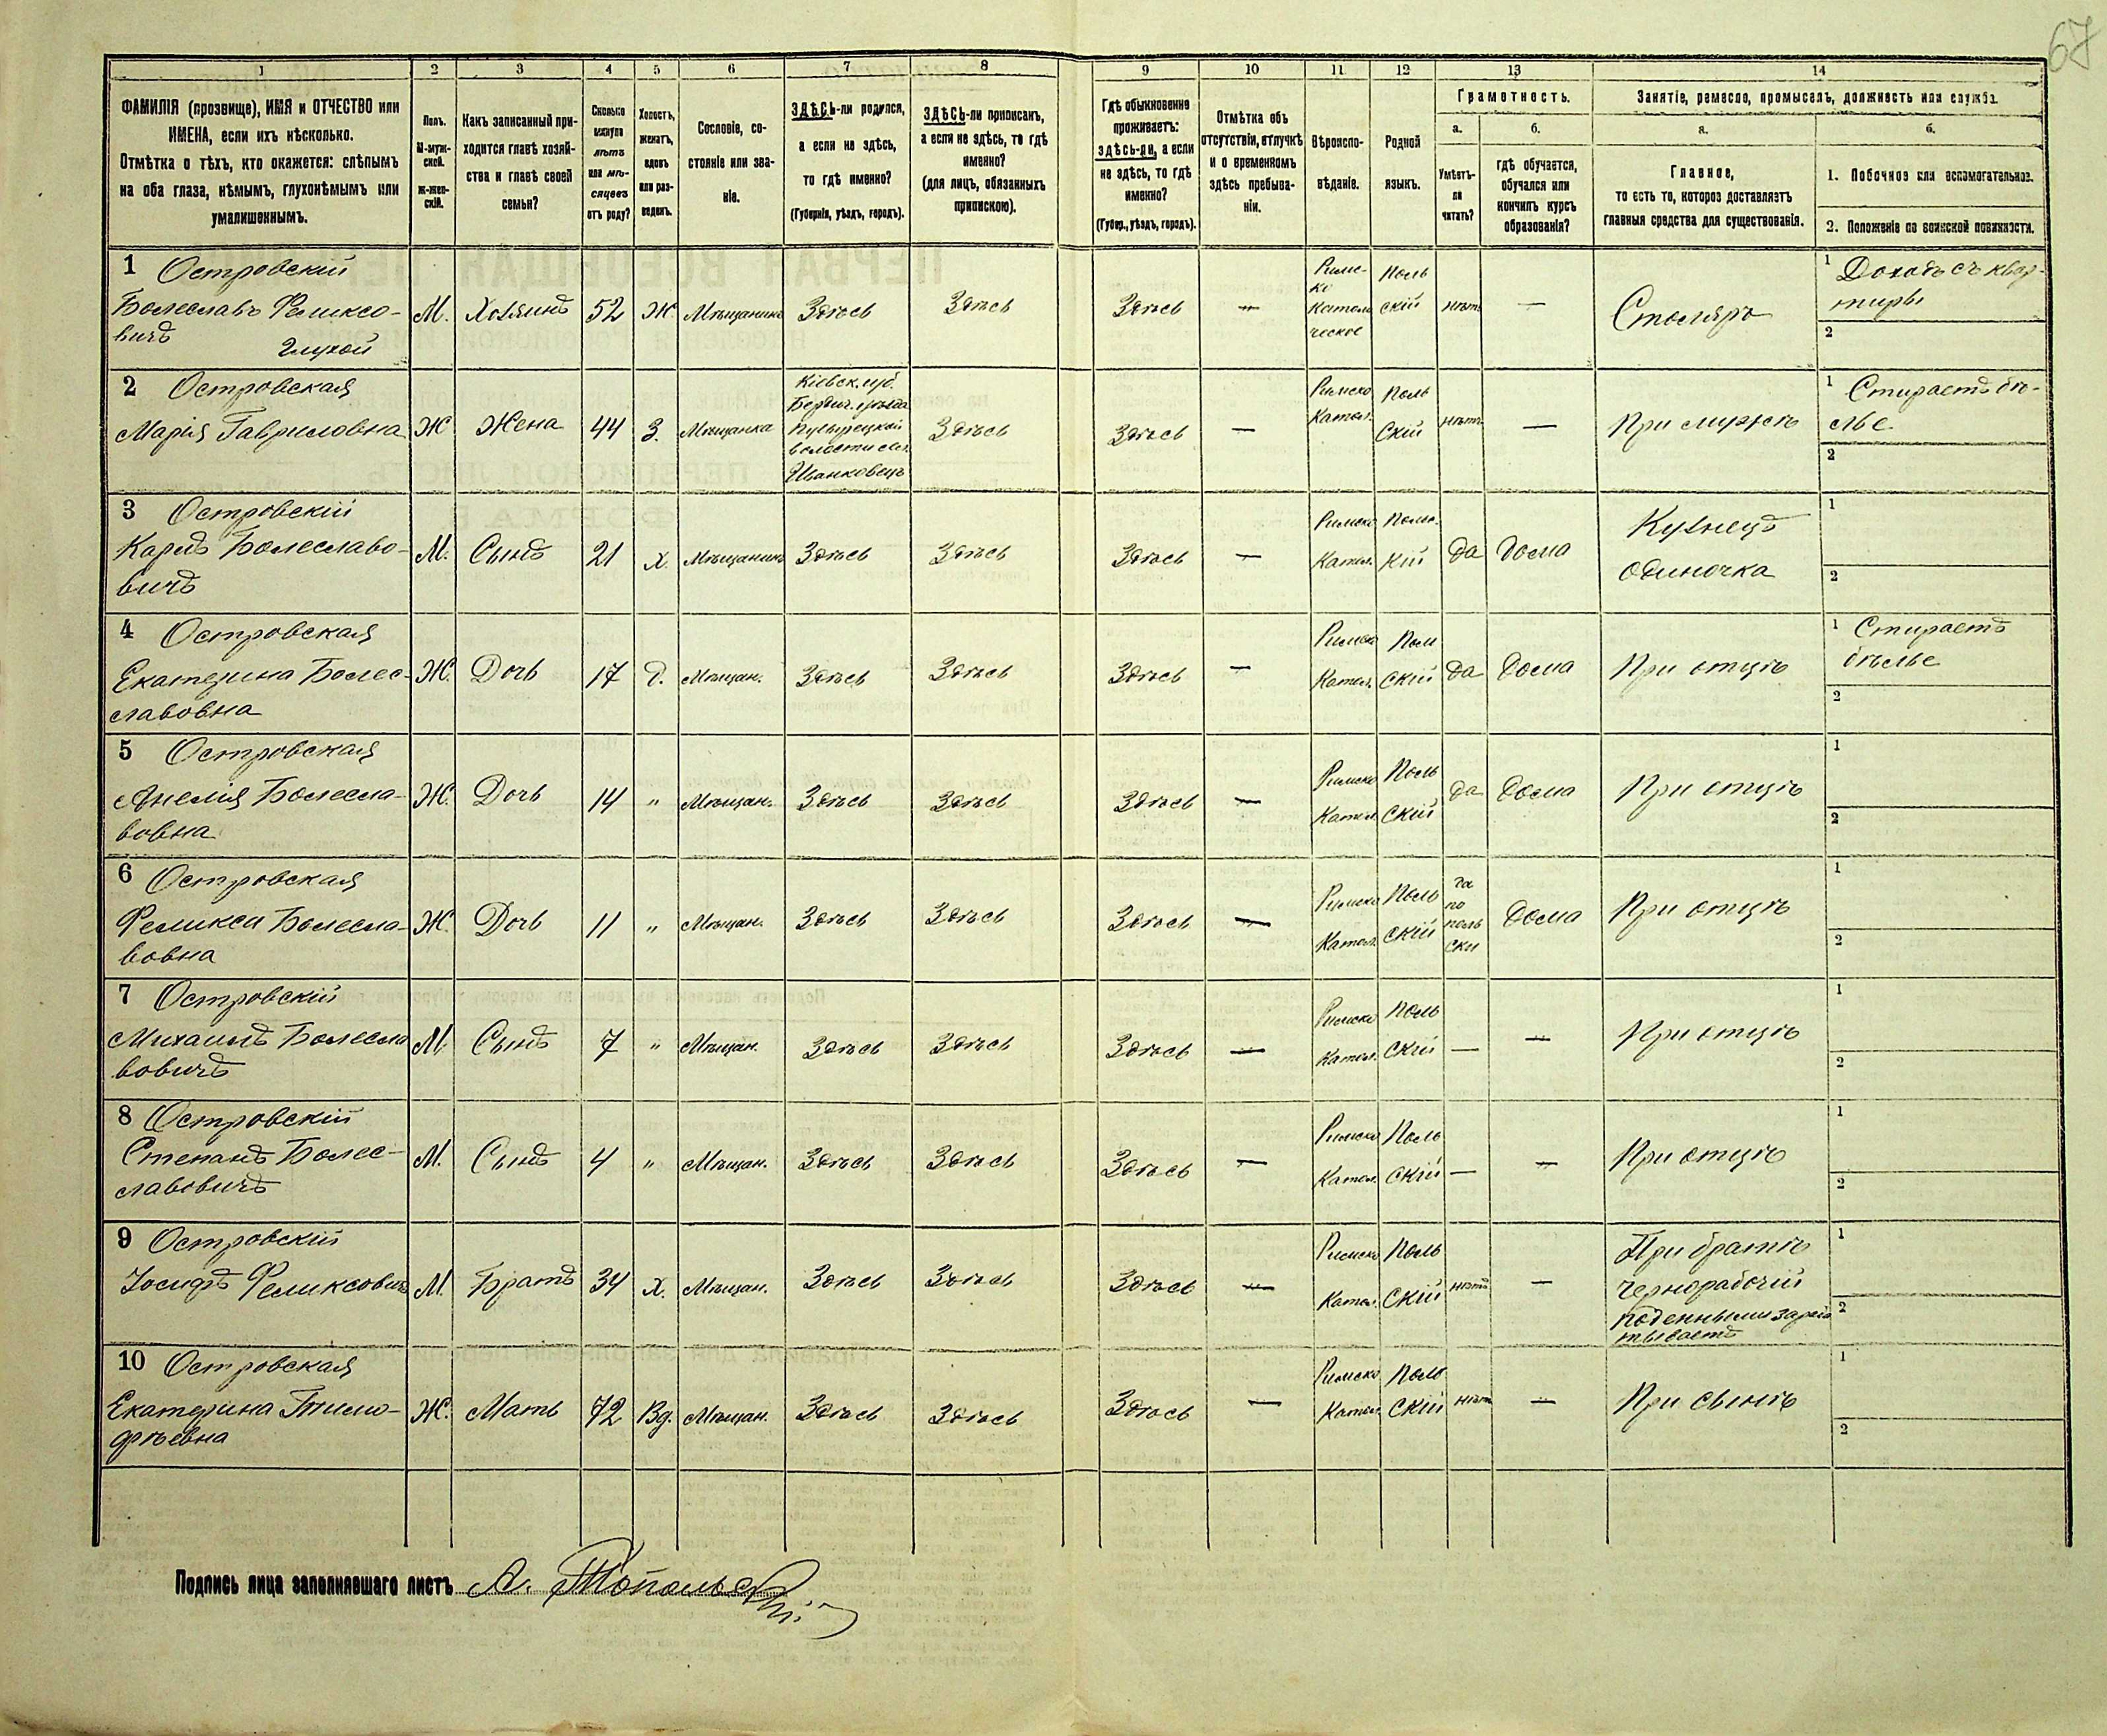 67
1 2 3 4 5 6 7 8 9 10 11 12 13 14
ФАМИЛІЯ (прозвище), ИМЯ и ОТЧЕСТВО или
ИМЕНА, если ихъ нѣсколько.
Отмѣтка о тѣхъ, кто окажется: слѣпымъ
на оба глаза, нѣмымъ, глухонѣмымъ или
умалишеннымъ.
Полъ.
М-муж-
ской.
Ж-жен-
скій.
Какъ записанный при-
ходится главѣ хозяй-
ства и главѣ своей
семьи?
Сколько
минуло
лѣтъ
или мѣ-
сяцевъ
отъ роду?
Холостъ,
женатъ,
вдовъ
или раз-
веденъ.
Сословіе, со-
стояніе или зва-
ніе.
ЗДѢСЬ-ли родился,
а если не здѣсь,
то гдѣ именно?
(Губернія, уѣздъ, городъ).
ЗДѢСЬ-ли приписанъ,
а если не здѣсь, то гдѣ
именно?
(для лицъ, обязанныхъ
припискою).
Гдѣ обыкновенно
проживаетъ:
здѣсь-ли, а если
не здѣсь, то гдѣ
именно?
(Губер., уѣздъ, городъ).
Отмѣтка объ
отсутствіи, отлучкѣ
и о временномъ
здѣсь пребыва-
ніи.
Вѣроиспо-
вѣданіе.
Родной
языкъ.
Грамотность.
а.
Умѣетъ-
ли
читать?
б.
гдѣ обучается,
обучался или
кончилъ курсъ
образованія?
Занятіе, ремесло, промыселъ, должность или служба.
а.
Главное,
то есть то, которое доставляетъ
главныя средства для существованія.
б.
1. Побочное или вспомогательное.
2. Положеніе по воинской повинности.
1 Островскій
Болеславъ Феликсо-
вичъ Глухой
М. Хозяинъ 52 Ж. Мѣщанинъ Здѣсь Здѣсь Здѣсь —
Римс-
ко
Католи
ческое
Поль
скій
нѣтъ — Столяръ
1 Доходъ съ квар-
тиры
2
2 Островская
Марія Гавриловна
Ж Жена 44 З. Мѣщанка
Кіевск. губ.
Бердич. уѣзда
волости сел.
Иванковецъ
Здѣсь Здѣсь —
Римско
Катол.
Поль
скій
нѣтъ — При мужѣ
1 Стираетъ бѣ-
лье
2
3 Островскій
Карлъ Болеславо-
вичъ
М. Сынъ 21 х. Мѣщанинъ Здѣсь Здѣсь Здѣсь —
Римско
Катол.
Польс
кій
да дома
Кузнецъ
одиночка
1
2
4 Островская
Екатерина Болес-
лавовна
Ж. Дочь 17 д. Мѣщан. Здѣсь Здѣсь Здѣсь —
Римско
Катол.
Пол
скій
да дома При отцѣ
1 Стираетъ
бѣлье
2
5 Островская
Анелія Болесла-
вовна
Ж. Дочь 14 " Мѣщан. Здѣсь Здѣсь Здѣсь —
Римско
Катол.
Поль
скій
да дома При отцѣ
1
2
6 Островская
Феликса Болесла-
вовна
Ж. Дочь 11 " Мѣщан. Здѣсь Здѣсь Здѣсь —
Римско
Катол.
Поль
скій
да
по
поль
ски
дома При отцѣ
1
2
7 Островскій
Михаилъ Болесла
вовичъ
М. Сынъ 7 " Мѣщан. Здѣсь Здѣсь Здѣсь —
Римско
Катол.
Поль
скій
— — При отцѣ
1
2
8 Островскій
Степанъ Болес-
лавовичъ
М. Сынъ 4 " Мѣщан. Здѣсь Здѣсь Здѣсь —
Римско
Катол.
Поль
скій
— — При отцѣ
1
2
9 Островскій
Іосифъ Феликсовичъ
М. Братъ 34 х. Мѣщан. Здѣсь Здѣсь Здѣсь —
Римско
Катол.
Поль
скій
нѣтъ —
При братѣ
чернорабочій
поденными зараба
тываетъ
1
2
10 Островская
Екатерина Тимо-
фѣевна
Ж. Мать 72 Вд. Мѣщан. Здѣсь Здѣсь Здѣсь —
Римско
Катол.
Поль
скій
нѣтъ — При сынѣ
1
2
Подпись лица заполнявшаго листъ А. Топольскій